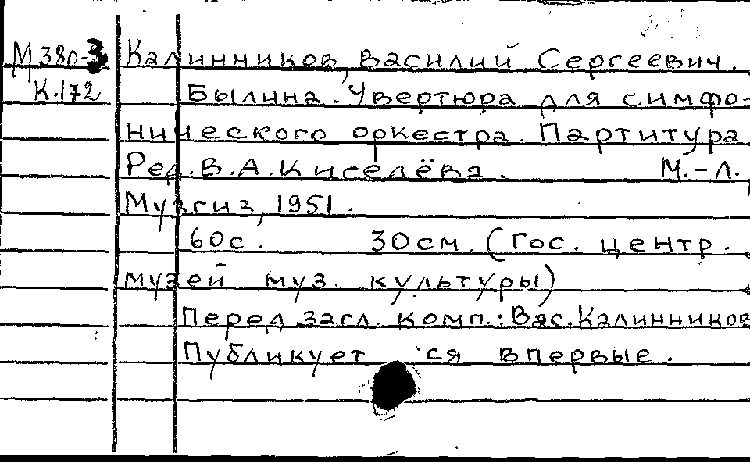 М 380-3 Калинников, Василий Сергеевич.
К.172 Былина. Увертюра для симфо-
нического оркестра. Партитура
Ред. В.А.Киселёва. М.-Л.,
Музгиз, 1951.
60с. 30см. (Гос. центр.
музей муз. культуры)
Перед загл. комп.: Вас.Калинников
Публикует ся впервые.